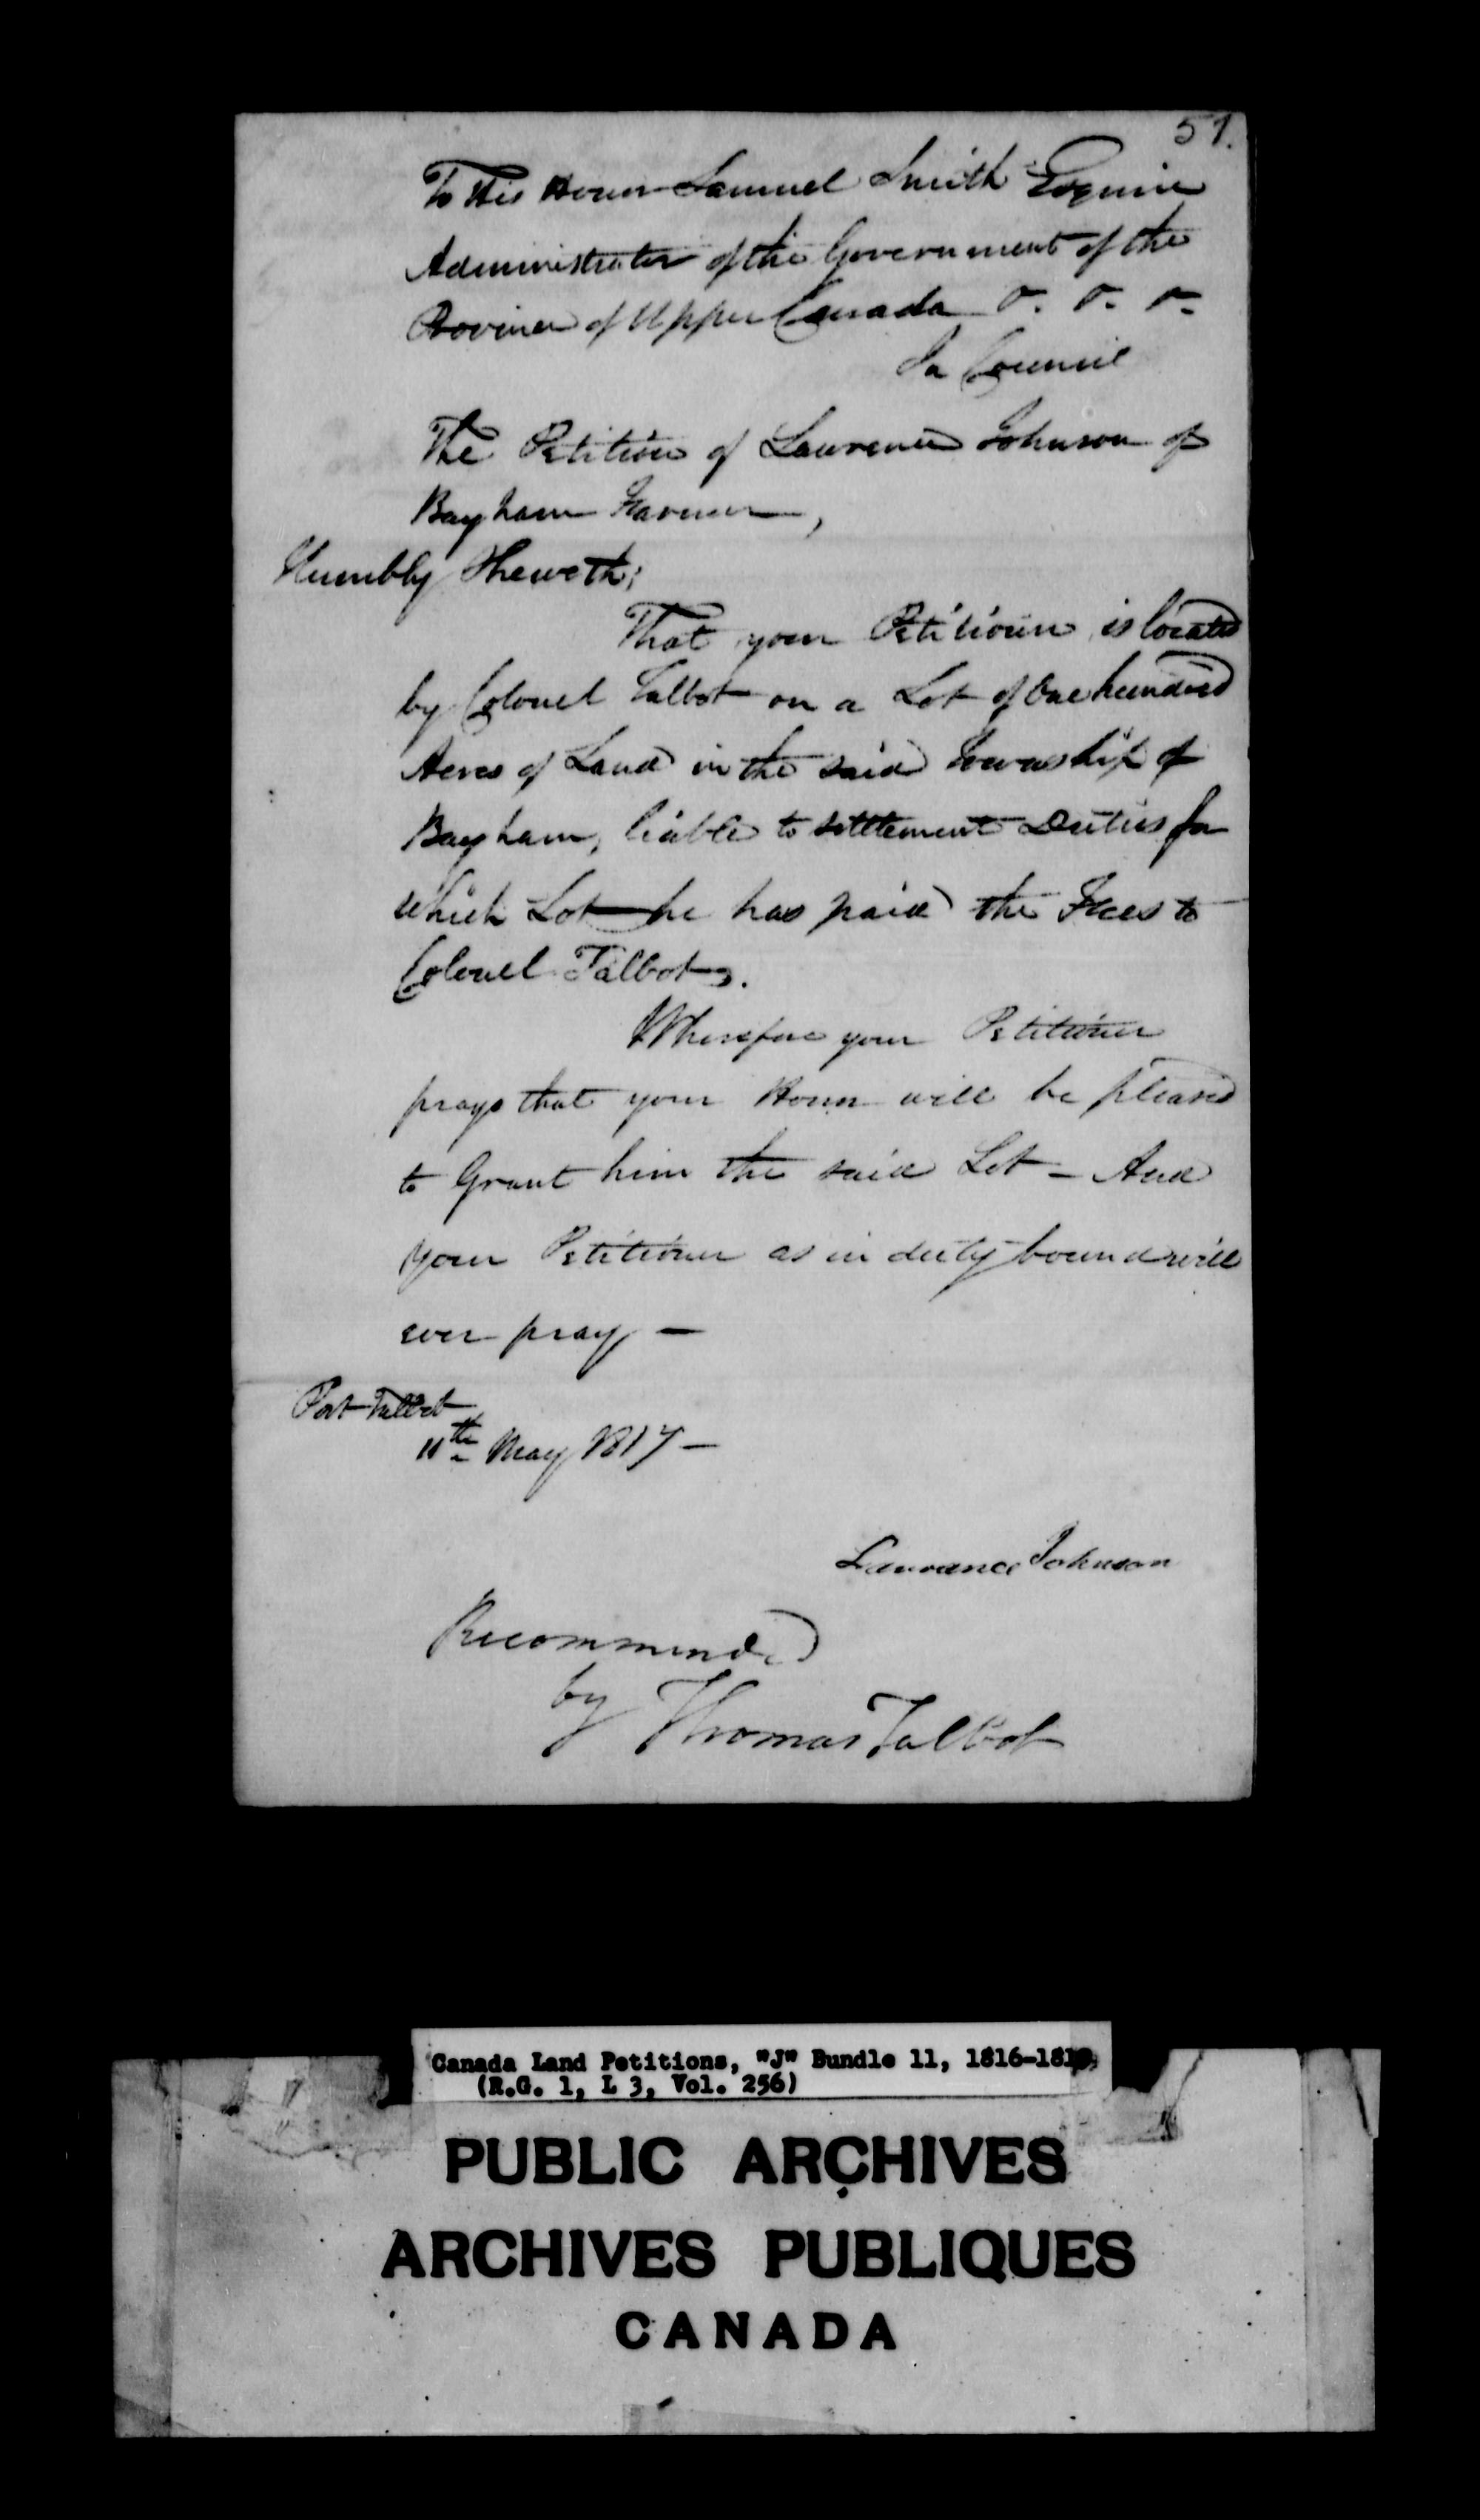 51.
To His Honor Samuel Smith Esquire
Administrator of the Government of the
Province of Upper Canada &. &. &.
In Council
The Petition of Lawrence Johnson of
Bayham Farmer,
Humbly Sheweth;
That your Petitioner is located
by Colonel Talbot on a Lot of One hundred
Acres of Land in the said Township of
Bayham, liable to settlement Duties for
which Lot he has paid the Fees to
Colonel Talbot.
Wherefore your Petitioner
prays that your Honor will be pleased
to Grant him the said Lot - And
your Petitioner as in duty bound will
ever pray —
Port Talbot
11th May 1817 —
Lawrance Johnson
Recommended
by Thomas Talbot
Canada Land Petitions, "J" Bundle 11, 1816-1819,
(R.G. 1, L 3, Vol. 256)
PUBLIC ARCHIVES
ARCHIVES PUBLIQUES
CANADA